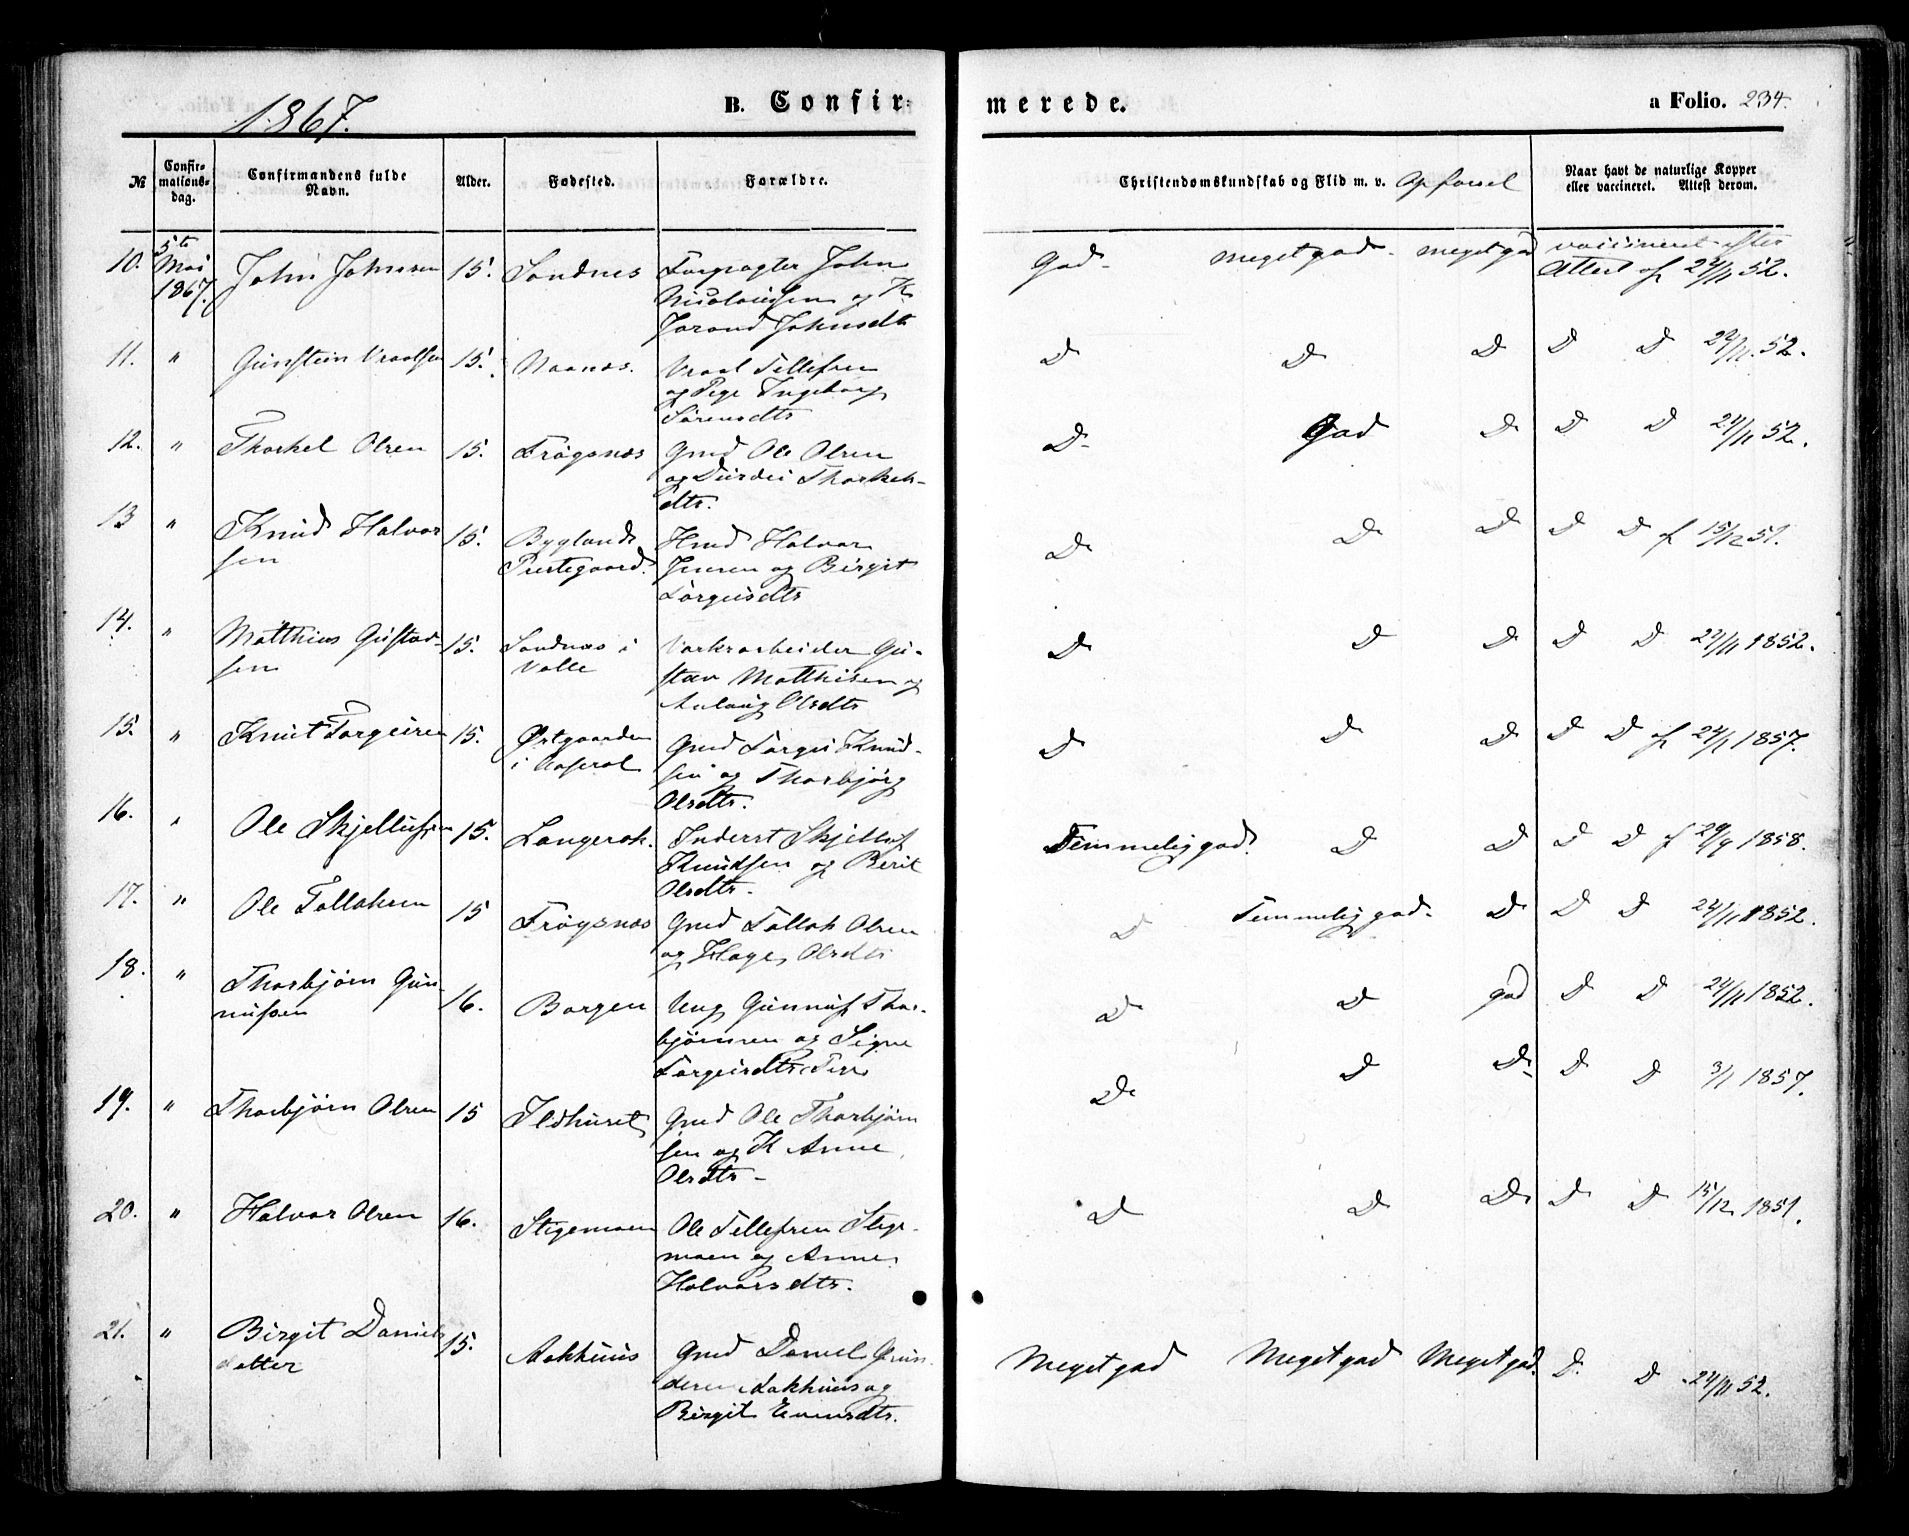 1867. B. Confirmerede. a Folio. 234.
№ Confirmationsdag. Confirmandens fulde Navn. Alder. Fødested. Forældre. Christendomskundskab og Flid m. v. Opførsel Naar havt de naturlige Kopper eller vaccineret. Attest derom.
10. 5te Mai 1867. John Johnsen 15. Sandnes Forpagter John
Nicolaisen og K.
Jorand Johnsdtr God. meget god. meget god vaccineret efter
Attest af 24/11 52.
11. " Gunstein Vraalsen 15. Naanæs. Vraal Tellefsen
og Pige Ingeborg
Sørensdtr D D D D D 22/11. 52.
12. " Thorkel Olsen 15. Frøysnæs Gmd Ole Olsen
og Thorkels-
dtr. D. God D D D 24/11 52.
13 " Knud Halvor
sen 15. Byglands
Prestegaard. Hmd Halvor
Jensen og Birgit
Torgeisdtr D D D D D f 15/12 51.
14. " Matthias Gustav-
sen 15. Sandnæs i
Valle Verkarbeider Gu-
stav Matthisen og
Aslaug Olsdtr D D D D D 22/11 1852.
15. " Knut Torgeirsen 15. Østgaarden
i Aaseral Gmd Torgei Knud-
sen og Thorbjørg
Olsdtr. D D D D D af 24/1 1857.
16. " Ole Skjellufsen 15. Langerak. Inderst Skjelluf
Knudsen og Berit
Olsdtr. Temmelig god. D D D D f 29/9 1858.
17. " Ole Tollaksen 15 Frøysnæs Gmd Tollak Olsen
og Hage Olsdtr D Temmelig god. D D D 24/11 1852.
18. " Thorbjørn Gun-
nufsen 16. Borgen Ung Gunnuf Thor-
bjørnsen og Signe
Torgeirsdtr D D god D D 24/11 1852.
19. " Thorbjørn Olsen 15 Ildhuset Gmd Ole Thorbjørn
sen og K Anne
Olsdtr. D D D. D D 3/1 1857.
20. " Halvor Olsen 16. Stigemoen Ole Tellefsen Stige-
moen og Anne
Halvorsdtr. D D D D D 15/12 1851.
21. " Birgit Daniels
datter 15. Aakhuus Gmd Daniel Gun-
dersen Aakhuus og
Birgit Evensdtr. Meget god Meget god Meget god. D. D 24/11 52.